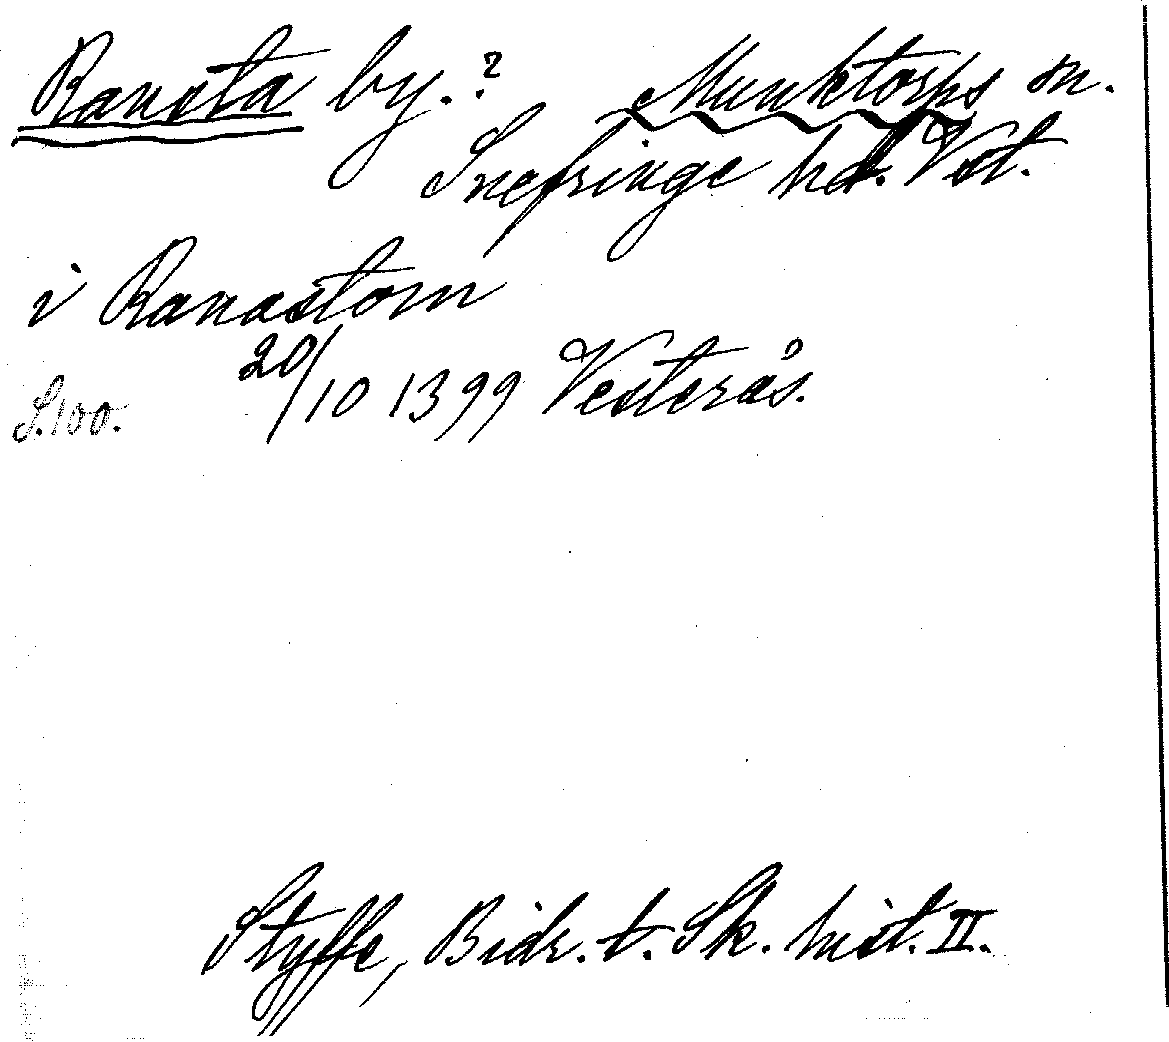 Ransta by.? Munktorps sn.
Snefringe hd. Vst.
i Ranastom
20/10 1399 Vesterås.
S. 100.
Styffe, Bidr. t. Sk. hist. II.